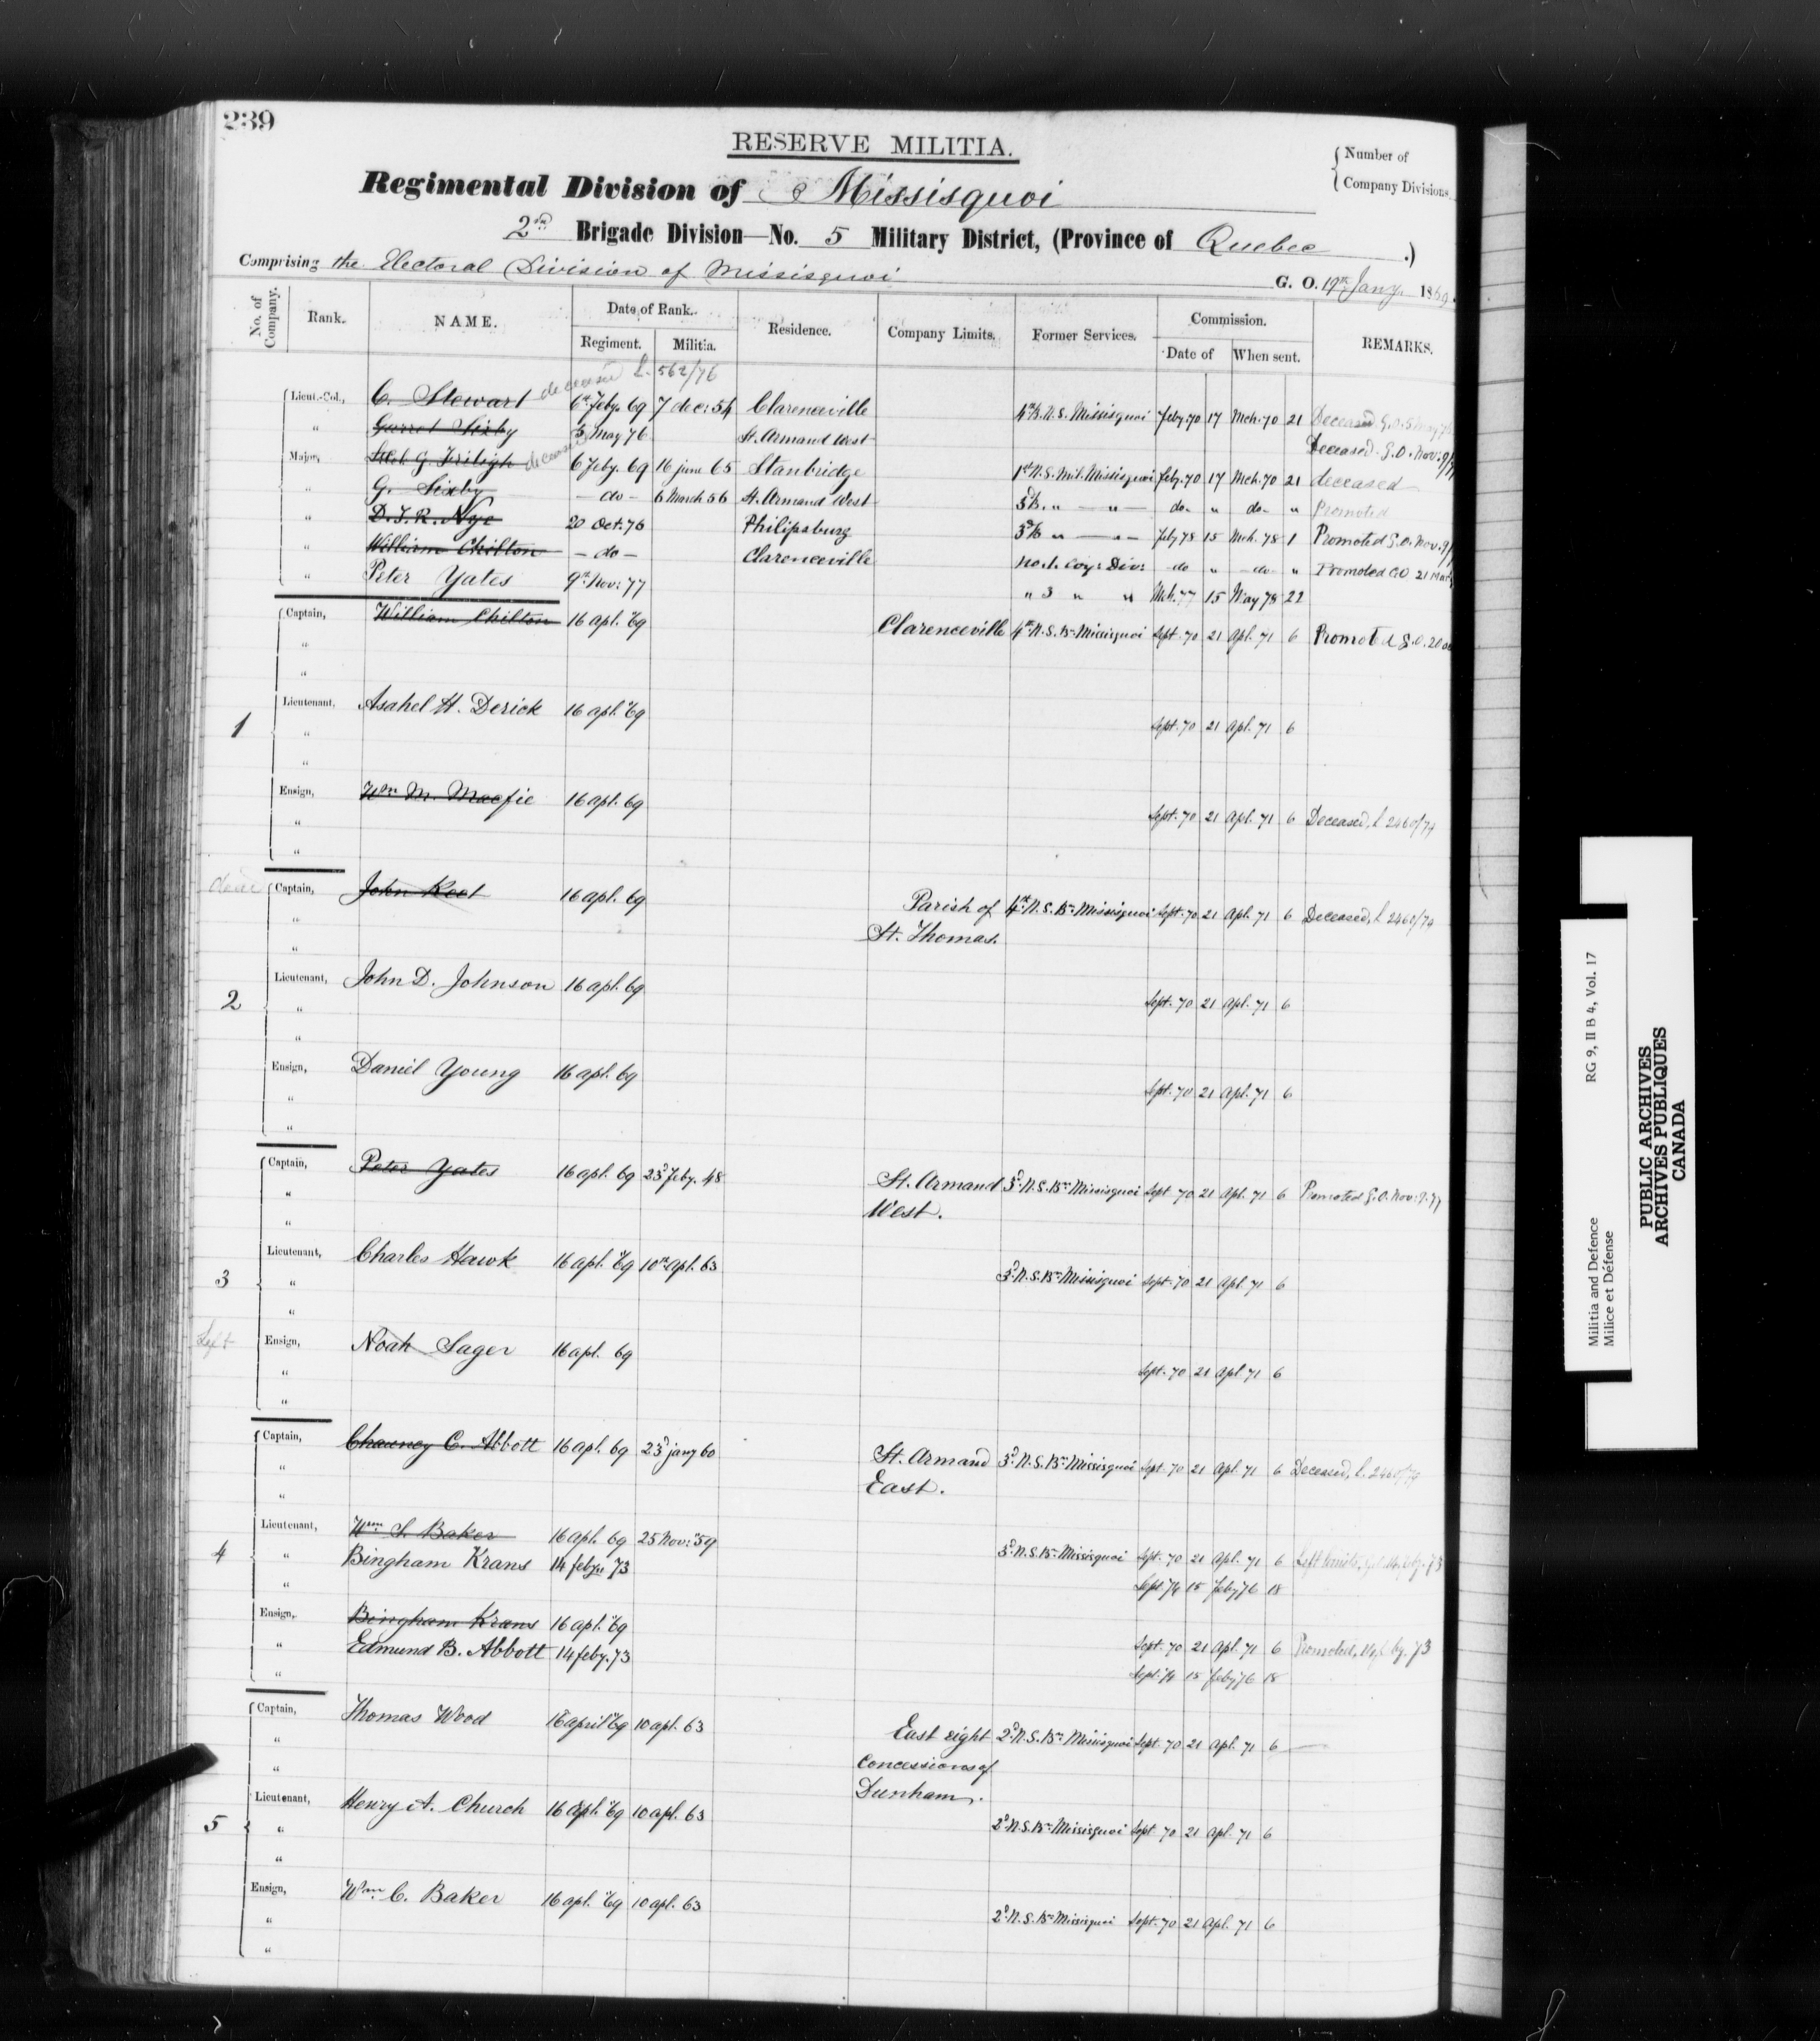 239
RESERVE MILITIA.
Regimental Division of Missisquoi
{ Number of
Company Divisions
2nd Brigade Division—No. 5 Military District, (Province of Quebec .)
Comprising the Electoral Division of Missisquoi G. O. 19th Jany. 1869.
No. of Company. Rank. NAME. Date of Rank. Residence. Company Limits. Former Services. Commission. REMARKS.
Regiment. Militia. Date of When sent.
deceased L. 562/76
Lieut.-Col., C. Stewart 6th Feby. 69 7 dec: 54 Clarenceville 4th B. N. S. Missisquoi Feby. 70 17 Mch. 70 21 Deceased G.O. 5 May 76
" Garret Sixby 5 May 76 St. Armand West Deceased G.O. Nov. 9/
Major, G. deceased 6 Feby. 69 16 June 65 Stanbridge 1st N. S. Mil. Missisquoi Feby. 70 17 Mch. 70 21 deceased
" G. Sixby — do — 6 March 56 St. Armand West 3d B. " — " — do. " do. " Promoted
" D. T. R. Nye 20 Oct. 76 Philipsburg 3d B " — " — Feby 78 15 Mch. 78 1 Promoted G.O. Nov. 9/
" William Chilton — do — Clarenceville No. 1. Coy: Div: do " do " Promoted G.O 21 Mar
" Peter Yates 9th Nov: 77 " 3 " " Mch. 77 15 May 78 22
Captain, William Chilton 16 apl. 69 Clarenceville 4th N. S. Bn. Missisquoi Sept. 70 21 Apl. 71 6 Promoted G.O. 20 oc
"
"
1
Lieutenant, Asahel H. Derick 16 apl. 69 Sept. 70 21 Apl. 71 6
"
"
Ensign, Wm M. Macfie 16 apl. 69 Sept. 70 21 Apl. 71 6 Deceased, L 2460/74
"
"
Captain, John Keet 16 apl. 69 Parish of 4th N. S. Bn. Missisquoi Sept. 70 21 Apl. 71 6 Deceased, L 2460/74
" St. Thomas.
"
2
Lieutenant, John D. Johnson 16 apl. 69 Sept. 70 21 Apl. 71 6
"
"
Ensign, Daniel Young 16 apl. 69 Sept. 70 21 Apl. 71 6
"
"
Captain, Peter Yates 16 apl. 69 23d Feby. 48 St. Armand 3d N. S. Bn. Missisquoi Sept. 70 21 Apl. 71 6 Promoted G.O. Nov: 9. 77
" West.
"
3
Lieutenant, Charles Hawk 16 apl. 69 10th apl. 63 3d N. S. Bn. Missisquoi Sept. 70 21 Apl. 71 6
"
"
Left Ensign, Noah Sager 16 apl. 69 Sept. 70 21 Apl. 71 6
"
"
Captain, Chauncy C. Abbott 16 apl. 69 23d jany 60 St. Armand 3d N. S. Bn. Missisquoi Sept. 70 21 Apl. 71 6 Deceased, L. 2460/74
" East.
"
4
Lieutenant, Wm S. Baker 16 apl. 69 25 Nov: 59 3d N. S. Bn. Missisquoi Sept. 70 21 Apl. 71 6 Left limits, 73
" Bingham Krans 14 feby. 73 Sept 74 15 Feby 76 18
"
Ensign, Bingham Krans 16 apl. 69 Sept. 70 21 Apl. 71 6 Promoted, 73
" Edmund B. Abbott 14 feby. 73 Sept. 74 15 Feby 76 18
"
Captain, Thomas Wood 16 april 69 10 apl. 63 East eight 2d N. S. Bn. Missisquoi Sept. 70 21 Apl. 71 6 —
" Concessions of
" Dunham.
5
Lieutenant, Henry A. Church 16 apl. 69 10 apl. 63 2d N. S. Bn. Missisquoi Sept. 70 21 Apl. 71 6
"
"
Ensign, Wm C. Baker 16 apl. 69 10 apl. 63 2d N. S. Bn. Missisquoi Sept. 70 21 Apl. 71 6
"
"
Militia and Defence RG 9, II B 4, Vol. 17
Milice et Défense
PUBLIC ARCHIVES
ARCHIVES PUBLIQUES
CANADA